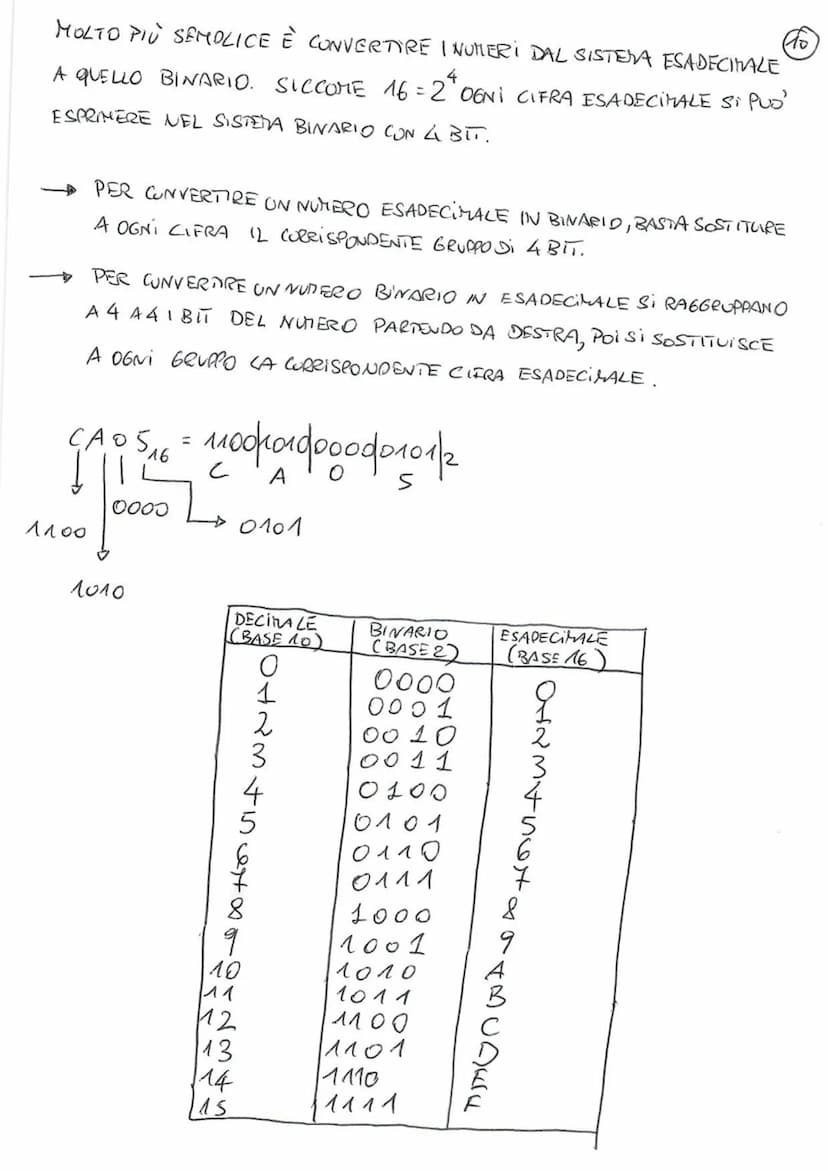 10
MOLTO PIÙ SEMPLICE È CONVERTIRE I NUMERI DAL SISTEMA ESADECIMALE
A QUELLO BINARIO. SICCOME 16 = 2⁴ OGNI CIFRA ESADECIMALE SI PUÒ
ESPRIMERE NEL SISTEMA BINARIO CON 4 BIT.
→ PER CONVERTIRE UN NUMERO ESADECIMALE IN BINARIO, BASTA SOSTITUIRE
A OGNI CIFRA IL CORRISPONDENTE GRUPPO DI 4 BIT.
→ PER CONVERTIRE UN NUMERO BINARIO IN ESADECIMALE SI RAGGRUPPANO
A 4 A 4 I BIT DEL NUMERO PARTENDO DA DESTRA, POI SI SOSTITUISCE
A OGNI GRUPPO LA CORRISPONDENTE CIFRA ESADECIMALE.
CA05₁₆ = 1100|1010|0000|0101|₂
C A 0 5
0000
1100 0101
1010
DECIMALE (BASE 10) BINARIO (BASE 2) ESADECIMALE (BASE 16)
0 0000 0
1 0001 1
2 0010 2
3 0011 3
4 0100 4
5 0101 5
6 0110 6
7 0111 7
8 1000 8
9 1001 9
10 1010 A
11 1011 B
12 1100 C
13 1101 D
14 1110 E
15 1111 F